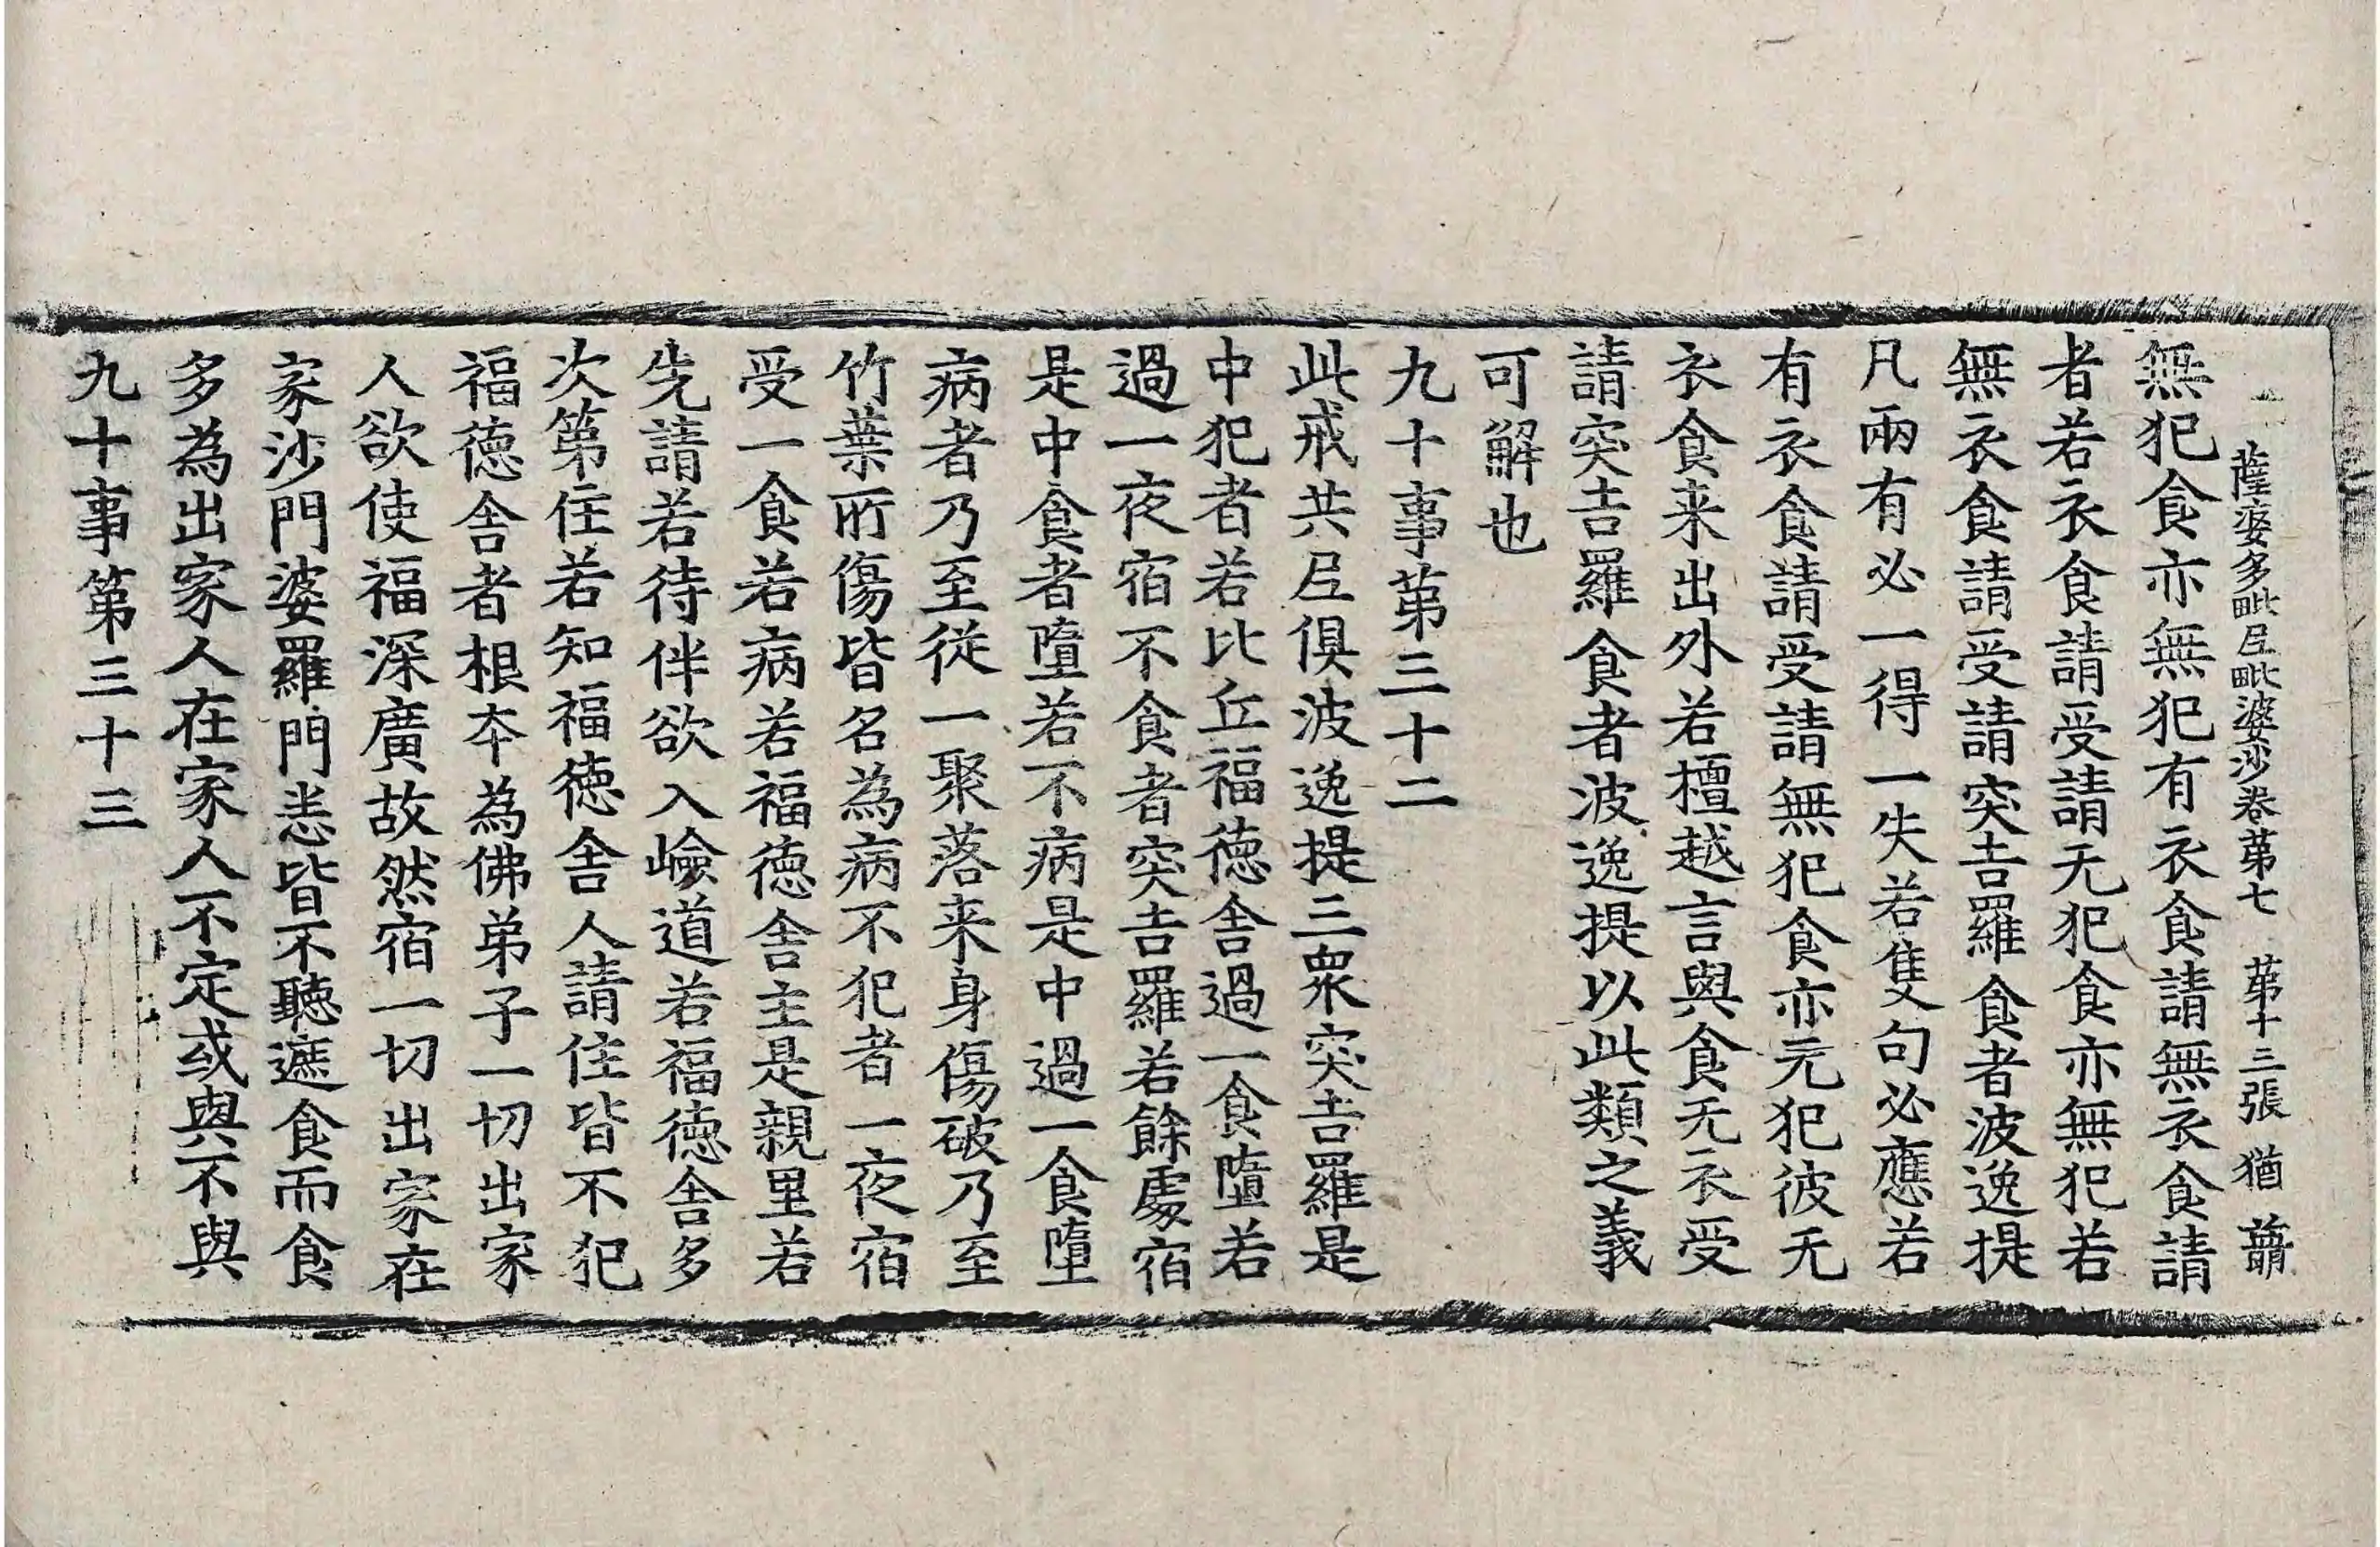 薩婆多毗尼毗婆沙卷苐七　苐十三張　猶
無犯食亦無犯有衣食請無衣食請
者若衣食請受請无犯食亦無犯若
無衣食請受請突吉羅食者波逸提
凡兩有必一得一失若隻句必應若
有衣食請受請無犯食亦元犯彼无
衣食来出外若檀越言與食无衣受
請突吉羅食者波逸提以此類之義
可解也
九十事苐三十二
此戒共尼俱波逸提三衆突吉羅是
中犯者若比丘福德舍過一食墮若
過一夜宿不食者突吉羅若餘處宿
是中食者墮若不病是中過一食墮
病者乃至從一聚落来身傷破乃至
竹葉所傷皆名為病不犯者一夜宿
受一食若病若福德舍主是親里若
先請若待伴欲入嶮道若福德舍多
次第住若知福德舍人請住皆不犯
福德舍者根夲為佛弟子一切出家
人欲使福深廣故然宿一切出家在
家沙門婆羅門悉皆不聽遮食而食
多為出家人在家人不定或與不與
九十事第三十三